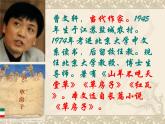 曹文轩，当代作家。1954
年生于江苏盐城农村。
1974年考进北京大学中文
系读书，后留校任教。现
在是北京大学教授、博士
生导师。著有《山羊不吃天
堂草》《草房子》《红瓦》
《根鸟》等。
本文选自长篇小说
《草房子》。
草房子